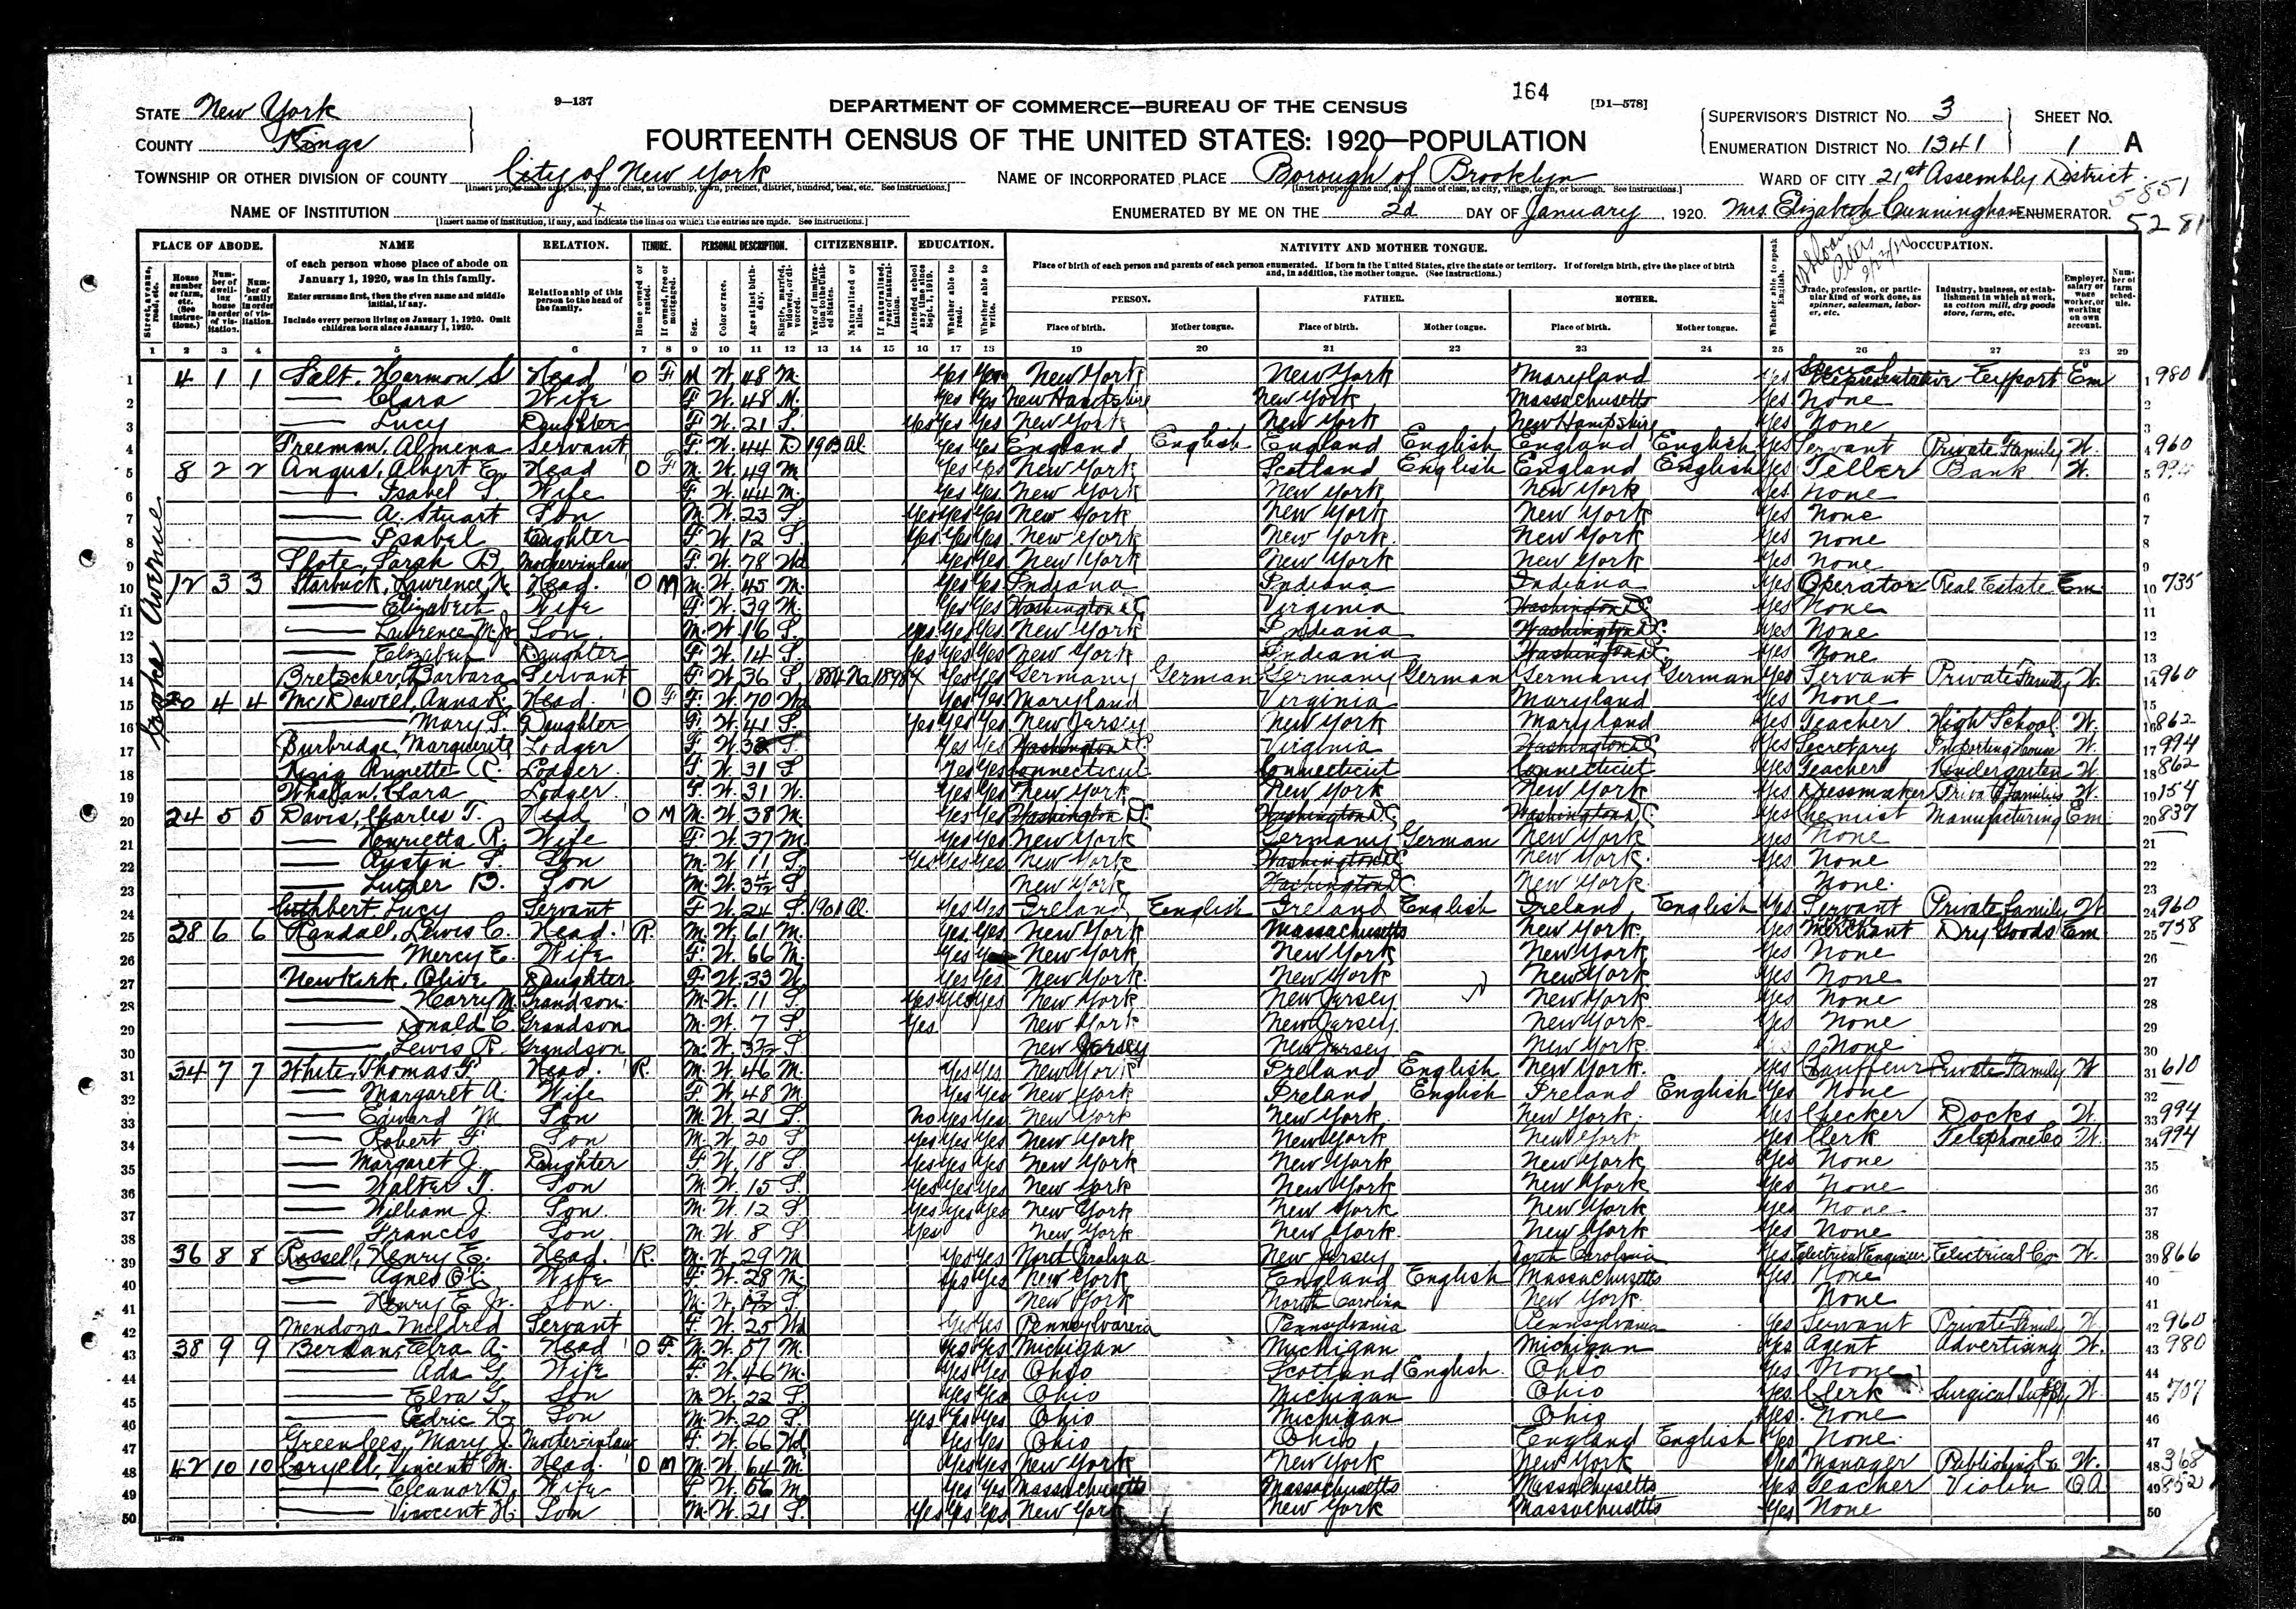 164
9—137
DEPARTMENT OF COMMERCE—BUREAU OF THE CENSUS
[D1—578]
FOURTEENTH CENSUS OF THE UNITED STATES: 1920—POPULATION
STATE New York
COUNTY Kings
SUPERVISOR'S DISTRICT NO. 3
ENUMERATION DISTRICT NO. 1341
SHEET NO.
1 A
TOWNSHIP OR OTHER DIVISION OF COUNTY City of New York
NAME OF INCORPORATED PLACE Borough of Brooklyn
WARD OF CITY 21st Assembly District
5851
[Insert name of institution, if any, and indicate the lines on which the entries are made. See instructions.]
NAME OF INSTITUTION x
ENUMERATED BY ME ON THE 2d DAY OF January, 1920. Mrs. Elizabeth Cunningham ENUMERATOR.
5281
PLACE OF ABODE. NAME RELATION. TENURE. PERSONAL DESCRIPTION. CITIZENSHIP. EDUCATION. NATIVITY AND MOTHER TONGUE. OCCUPATION.
of each person whose place of abode on January 1, 1920, was in this family.
Enter surname first, then the given name and middle initial, if any.
Include every person living on January 1, 1920. Omit children born since January 1, 1920.
Relationship of this person to the head of the family.
Place of birth of each person and parents of each person enumerated. If born in the United States, give the state or territory. If of foreign birth, give the place of birth and, in addition, the mother tongue. (See instructions.)
PERSON. FATHER. MOTHER.
Place of birth. Mother tongue. Place of birth. Mother tongue. Place of birth. Mother tongue.
1 2 3 4 5 6 7 8 9 10 11 12 13 14 15 16 17 18 19 20 21 22 23 24 25 26 27 28 29
1 4 1 1 Salt, Harmon S Head O F M W 48 M Yes Yes New York New York Maryland Yes Special Representative Export Em 1 980
2 Clara Wife F W. 48 M. Yes Yes New Hampshire New York Massachusetts Yes None 2
3 Lucy Daughter F W. 21 S. Yes Yes Yes New York New York New Hampshire Yes None 3
4 Freeman, Almena Servant F W. 44 D Al. Yes Yes England English England English England English Yes Servant Private Family W. 4 960
5 8 2 2 Angus, Albert E. Head O F M. W. 49 M Yes Yes New York Scotland English England English Yes Teller Bank W. 5
6 Isabel S. Wife F W. 44 M. Yes Yes New York New York New York Yes None 6
7 A. Stuart Son M. W. 23 S. Yes Yes Yes New York New York New York Yes None 7
8 Isabel Daughter F. W. 12 S. Yes Yes Yes New York New York New York Yes None 8
9 Slote, Sarah B. Mother in law F. W. 78 Wd Yes Yes New York New York New York Yes None 9
10 12 3 3 Starbuck, Lawrence M. Head. O M M. W. 45 M. Yes Yes Indiana Indiana Indiana Yes Operator Real Estate Em. 10 735
11 Elizabeth Wife F W. 39 M. Yes Yes Washington DC Virginia Washington DC Yes None 11
12 Lawrence M. Jr. Son. M. W. 16 S. Yes Yes Yes New York Indiana Washington DC. Yes None 12
13 Elizabeth Daughter F. W. 14 S. Yes Yes Yes New York Indiana Washington DC Yes None 13
14 Bretscher, Barbara Servant F W. 36 S. 1884 Na. 1898 Yes Yes Germany German Germany German Germany German Yes Servant Private Family W. 14 960
15 20 4 4 McDowell, Anna R. Head. O F F. W. 70 Wd Yes Yes Maryland Virginia Maryland Yes None 15
16 Mary S. Daughter F. W. 41 S. Yes Yes Yes New Jersey New York Maryland Yes Teacher High School W. 16 862
17 Burbridge, Marguerite Lodger F. W. 38 S. Yes Yes Washington D.C. Virginia Washington DC Yes Secretary Importing House W. 17 994
18 Annette C. Lodger. F. W. 31 S. Yes Yes Connecticut Connecticut Connecticut Yes Teacher Kindergarten W. 18 862
19 Whalan, Clara Lodger. F W. 31 W. Yes Yes New York New York New York Yes Dressmaker Private Families W. 19 154
20 24 5 5 Davis, Charles T. Head O M M. W. 38 M. Yes Yes Washington DC Washington DC Washington DC Yes Chemist Manufacturing Em 20 837
21 Henrietta R. Wife F. W. 37 M. Yes Yes New York Germany German New York Yes None 21
22 Austin S. Son M. W. 11 S. Yes Yes Yes New York Washington DC New York. Yes None 22
23 Luther B. Son M. W. 3 4/12 S New York Washington DC New York None. 23
24 Cuthbert Lucy Servant F. W. 24 S. 1901 Al. Yes Yes Ireland English Ireland English Ireland English Yes Servant Private Family W 24 960
25 28 6 6 Randall, Lewis C. Head. R. M. W. 61 M. Yes Yes New York Massachusetts New York Yes Merchant Dry Goods Em 25 758
26 Mercy E. Wife F. W. 66 M. Yes Yes New York New York New York Yes None 26
27 Newkirk, Olive Daughter F. W. 33 W. Yes Yes New York New York New York Yes None 27
28 Harry M. Grandson. M. W. 11 S. Yes Yes Yes New York New Jersey New York Yes None 28
29 Donald C. Grandson M. W. 7 S. Yes New York New Jersey New York Yes None 29
30 Lewis R. Grandson M. W. S New Jersey New Jersey New York None 30
31 34 7 7 White, Thomas F. Head. R. M. W. 46 M. Yes Yes New York Ireland English New York. Yes Chauffeur Private Family W 31 610
32 Margaret A. Wife F. W. 48 M. Yes Yes New York Ireland English Ireland English Yes None 32
33 Edward M. Son M. W. 21 S. No Yes Yes New York New York New York Yes Checker Docks W. 33 994
34 Robert F. Son M. W. 20 S Yes Yes Yes New York New York New York Yes Clerk Telephone Co W. 34 994
35 Margaret J. Daughter F. W. 18 S. Yes Yes Yes New York New York New York Yes None 35
36 Walter T. Son M. W. 15 S. Yes Yes Yes New York New York New York Yes None 36
37 William J. Son. M. W. 12 S. Yes Yes Yes New York New York New York Yes None 37
38 Francis Son M. W. 8 S Yes New York New York New York Yes None 38
39 36 8 8 Russell, Henry E. Head. R. M. W. 29 M Yes Yes North Carolina New Jersey North Carolina Yes Electrical Engineer Electrical Co W. 39 866
40 Agnes Wife F. W. 28 M. Yes Yes New York England English Massachusetts Yes None 40
41 Henry E. Jr. Son. M. W. S. New York North Carolina New York None 41
42 Mendoza Mildred Servant F. W. 25 Wd Yes Yes Pennsylvania Pennsylvania Pennsylvania Yes Servant Private Family W 42 960
43 38 9 9 Berdan, Elra A. Head O F. M. W. 57 M. Yes Yes Michigan Michigan Michigan Yes Agent Advertising W. 43 980
44 Ada G. Wife F. W. 46 M. Yes Yes Ohio Scotland English Ohio Yes None 44
45 Elra G. Son M. W. 22 S. Yes Yes Ohio Michigan Ohio Yes Clerk Surgical Supply W. 45 707
46 Cedric H. Son M. W. 20 S. Yes Yes Yes Ohio Michigan Ohio Yes. None 46
47 Greenlees, Mary J. Mother-in-law F. W. 66 Wd Yes Yes Ohio Ohio England English Yes None. 47
48 42 10 10 Coryell, Vincent M. Head. O M M. W. 64 M. Yes Yes New York New York New York Yes Manager Publishing Co W. 48 368
49 Eleanor B. Wife F W. 56 M. Yes Yes Massachusetts Massachusetts Massachusetts Yes Teacher Violin OA 49 852
50 Vincent H. Son M. W. 21 S. Yes Yes Yes New York New York Massachusetts Yes None 50